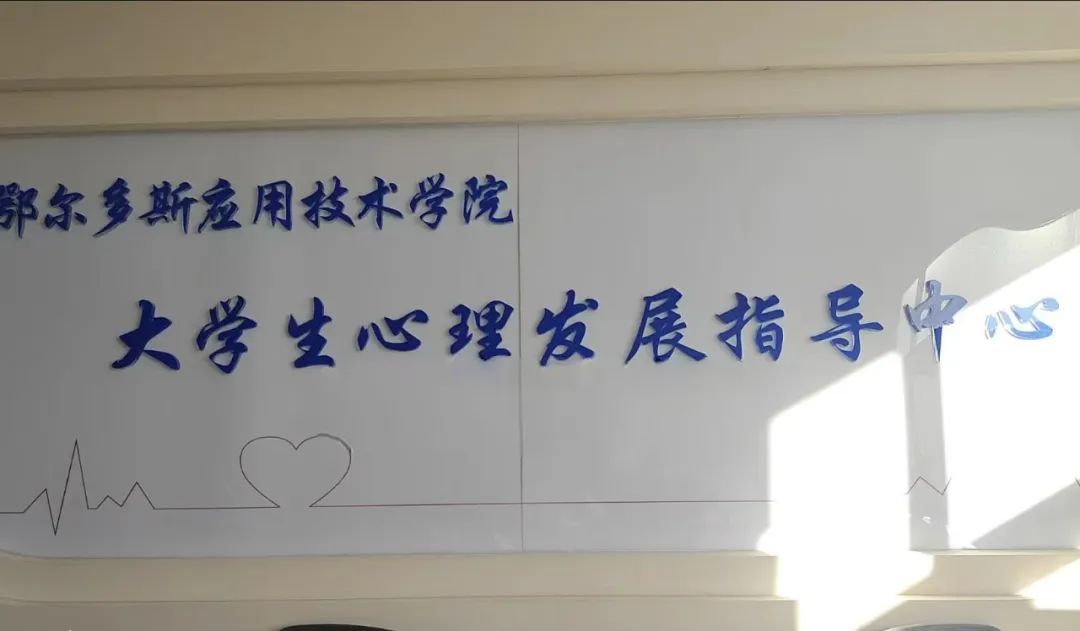 鄂尔多斯应用技术学院
大学生心理发展指导中心